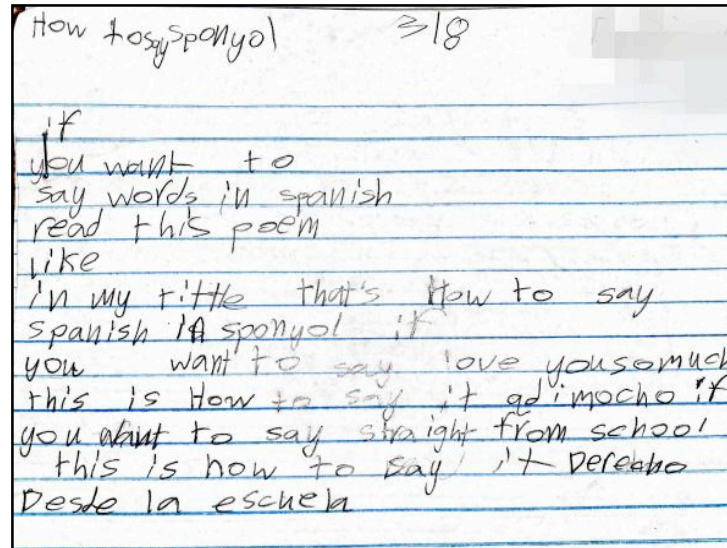 How to say sponyol 318
if
you want to
say words in spanish
read this poem
like
in my tittle that's How to say
spanish in sponyol if
you want to say love yousomuch
this is How to say it adimocho if
you want to say straight from school
this is how to say it Derecho
Desde la escuela